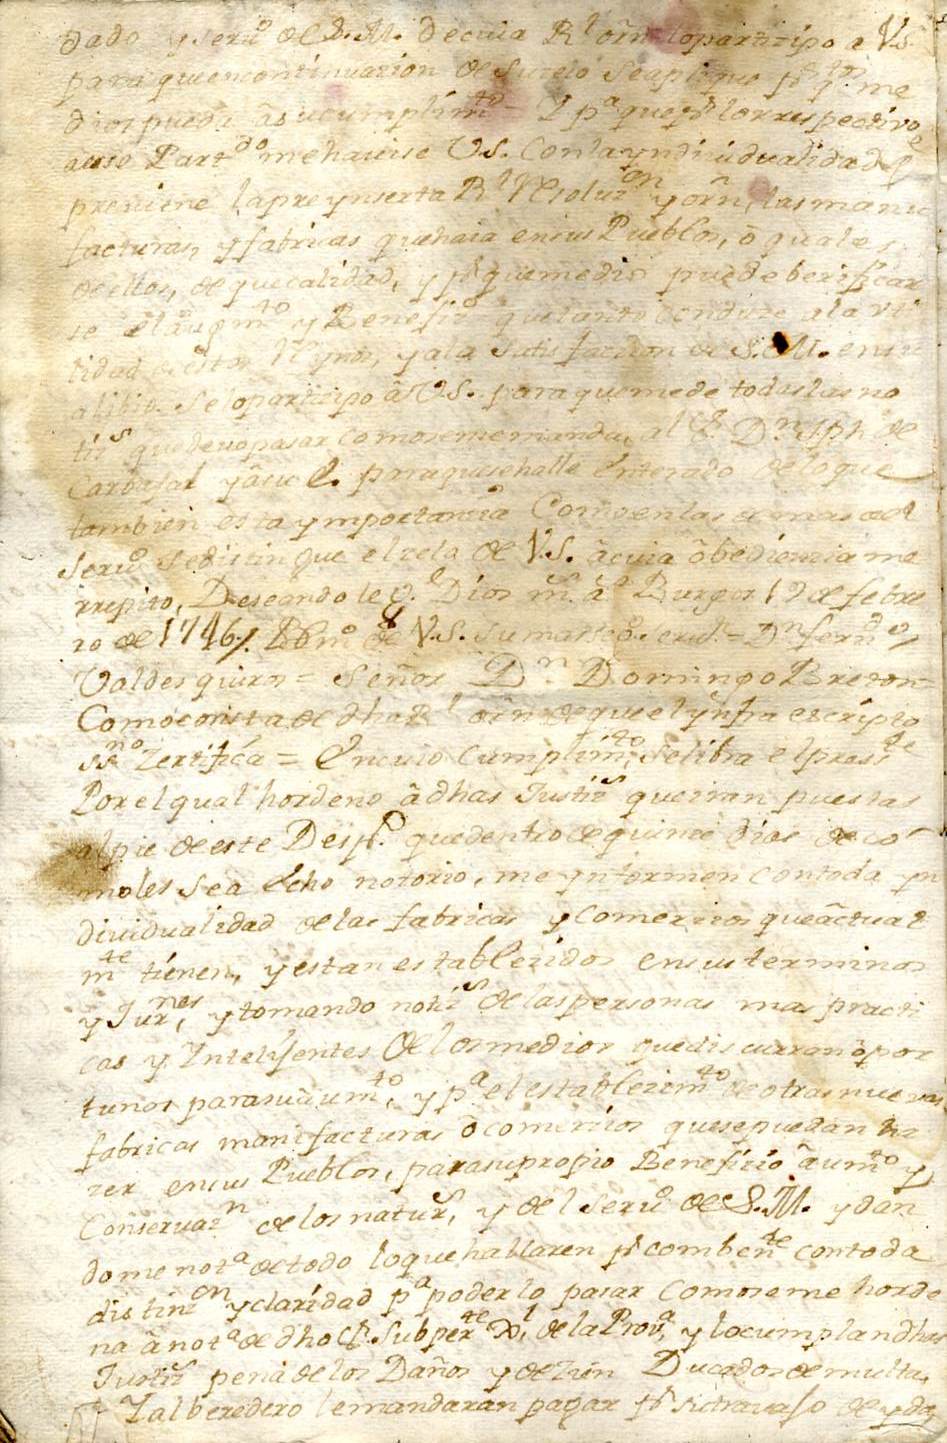 dado y serv.º de S.M. de cuia Rl orn lo participo a V.S.
para que en continuazion de su zelo se aplique pr qtos me
dios pueda â su cumplimto Y pa que pr lo rrespectivo
a ese Partdo me haui se V.S. con la yndiuidualidad q
preuiene la preynserta Rl Resoluzon y orn, las manu
facturas, y fabricas que haia en sus Pueblos, ô quales
de ellos, de que calidad, y pr que medio puede berificar
se el augmto y Benefizio que tanto conduze a la uti
lidad de estos Rynos, y a la satisfaccion de S.M. en su
alibio. Se lo participo â V.S. para que me de todas las no
tizs que deuo pasar como se me manda, al Sr Dn Jph de
Carbajal y â su E. para que se halle enterado de lo que
tambien en esta ymportancia como en las demas del
Seruo se distingue el zelo de V.S. â cuia ôbediencia me
rrepito, Deseando le ge Dios ms as Burgos 19 de febre
ro de 1746/. BLmo de V.S. su mas seo. crd.= Dn ferndo
Valdes quiros = Señor Dn Domingo Breton
Como consta de dha Rl orn de que el ynfra escripto
ssno Zertifica = En cuio cumplimto, se libra el prste
Por el qual hordeno â dhas Justizs que iran puestas
al pie de este Despo. que dentro de quinze dias de co
moles sea echo notorio, me ynformen con toda yn
diuidualidad de las fabricas y comerzios que âctual
mte tienen, y estan establezidos en sus terminos
y Jurnes, y tomando notizs de las personas mas practi
cas y Intelijentes de los medios que discurran ôpor
tunos para su âumto, y pa el establezimto de otras nuevas
fabricas manifacturas ô comerzios que se puedan ha
zer en sus Pueblos, para su propio Benefizio âumto y
Conseruazn de los naturs, y del Seruo de S.M. y dan
dome nota de todo lo que hallaren pr combente con toda
distinzon y claridad pa poderlo pasar como se me horde
na â nota de dho Sr. Subperte Gl, de la Prova, y lo cumplan dhas
Justizs pena de los Daños y de zien Ducados de multa,
Y al beredero le mandaran pagar pr su trauajo de yda,